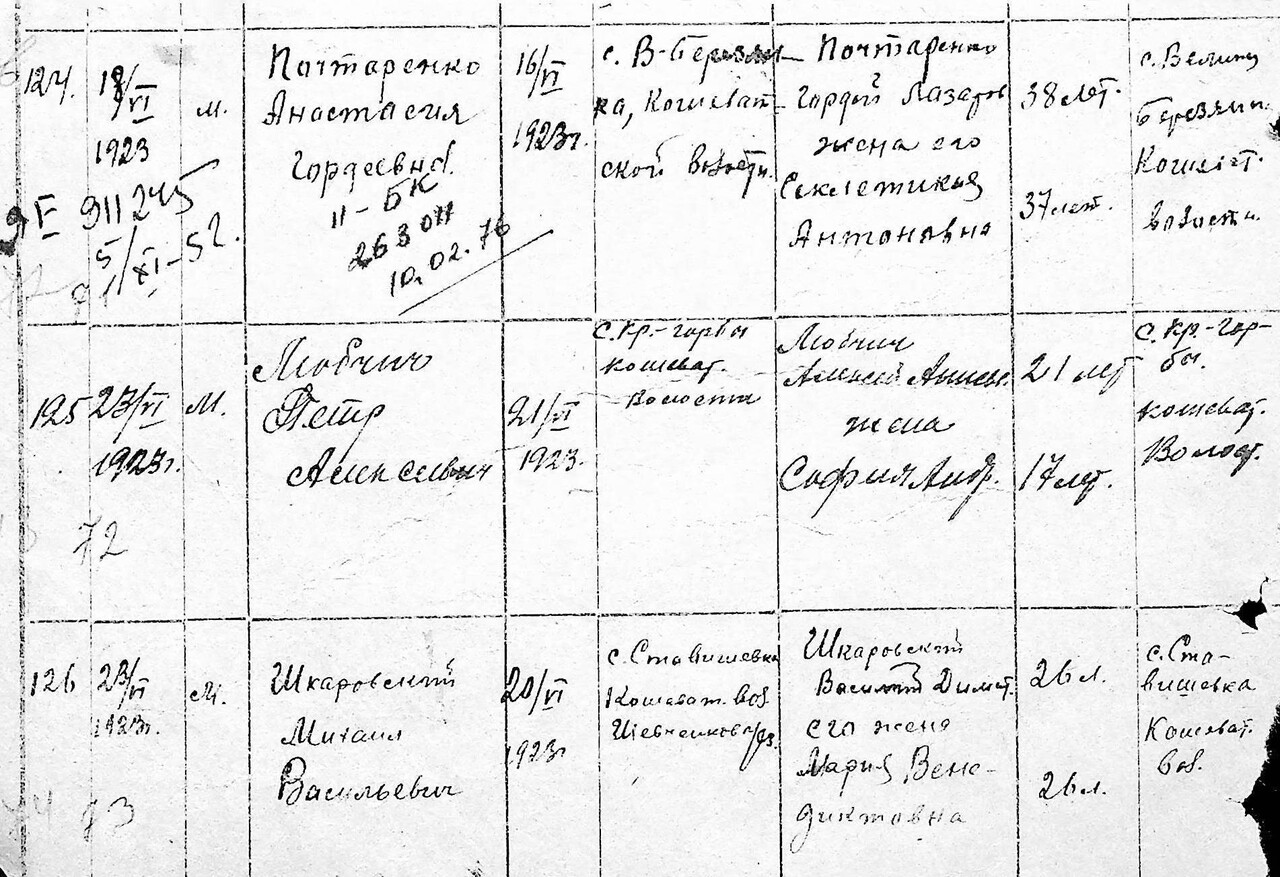 124.
18/VI
1923
м.
Почтаренко
Анастасия
Гордеевна
16/VI
1923г.
с. В-Березян-
ка, Кошеват-
ской волости.
Почтаренко
Гордей Лазаров
жена его
Секлетикия
Антоновна
38 лет.
37 лет.
с. Велику
Березянк.
Кошеват.
волости.
ЯГ 911245
5/XI-52.
II-БК
263011
10.02.76
125
23/VI
1923г.
м.
Любчич
Пётр
Алексеевич
21/VI
1923.
с. Кр.-горбы
кошеват.
волости
Любчич
Алексей
жена
София Андр.
21 лет
17 лет.
с. Кр.-Гор-
бы.
кошеват.
Волост.
72
126
23/VI
1923г.
м.
Шкаровский
Михаил
Васильевич
20/VI
1923г
с. Ставишевка
Кошеват. вол.
Шкаровский
Василий Димит.
его жена
Мария Вене-
диктовна
26 л.
26 л.
с. Ста-
вишевка
Кошеват.
вол.
73